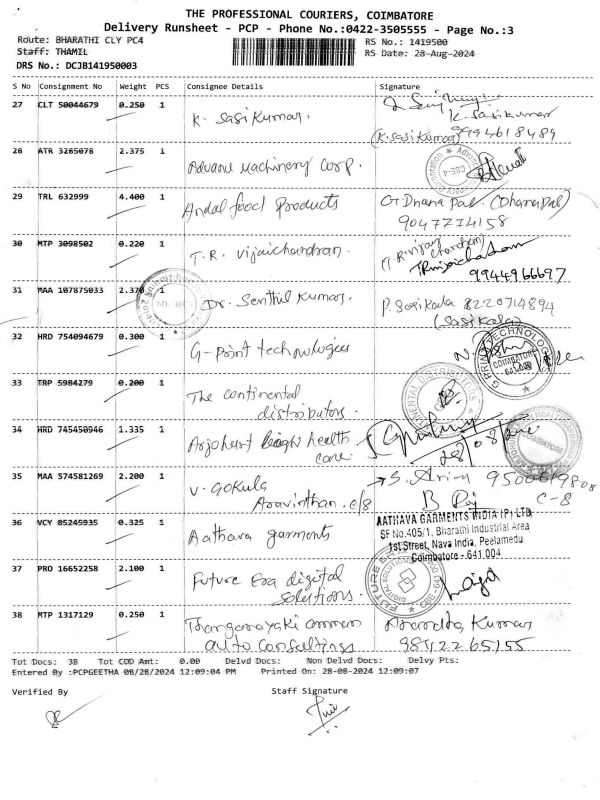 THE PROFESSIONAL COURIERS, COIMBATORE
Delivery Runsheet - PCP - Phone No.:0422-3505555 - Page No.:3
Route: BHARATHI CLY PC4
RS No.: 1419500
Staff: THAMIL
RS Date: 28-Aug-2024
DRS No.: DCJB141950003
S No Consignment No Weight PCS Consignee Details Signature
27 CLT 50044679 0.250 1
K. Sasi Kumar.
K. Sasikumar
(K. Sasi Kumar) 9994618489
28 ATR 3285078 2.375 1
Advance Machinery Corp.
29 TRL 632999 4.400 1
Andal food Products
G Dhana Pal. (Dhanapal)
9047714158
30 MTP 3098502 0.220 1
T.R. Vijaichandran.
9944966697
31 MAA 107875033 2.370 1
Dr. Senthil Kumar.
P. Sasikala 8220714894
(Sasikala)
32 HRD 754094679 0.300 1
G-Point technologies
COIMBATORE
33 TRP 5984279 0.200 1
The continental
distributors.
34 HRD 745450946 1.335 1
Arjohunt health
care
28/08/
COIMBATORE
35 MAA 574581269 2.200 1
V. GOKULA
Aravinthan. c/8
C-8
36 VCY 85245935 0.325 1
Aathava garments
AATHAVA GARMENTS INDIA (P) LTD
SF No.405/1, Bharathi Industrial Area
1st Street, Nava India, Peelamedu
Coimbatore - 641 004
37 PRO 16652258 2.100 1
Future Era digital
Solutions.
38 MTP 1317129 0.250 1
Thanganayaki amman
auto Consultings
Kumar
9842265155
Tot Docs: 38 Tot COD Amt: 0.00 Delvd Docs: Non Delvd Docs: Delvy Pts:
Entered By :PCPGEETHA 08/28/2024 12:09:04 PM Printed On: 28-08-2024 12:09:07
Verified By
Staff Signature